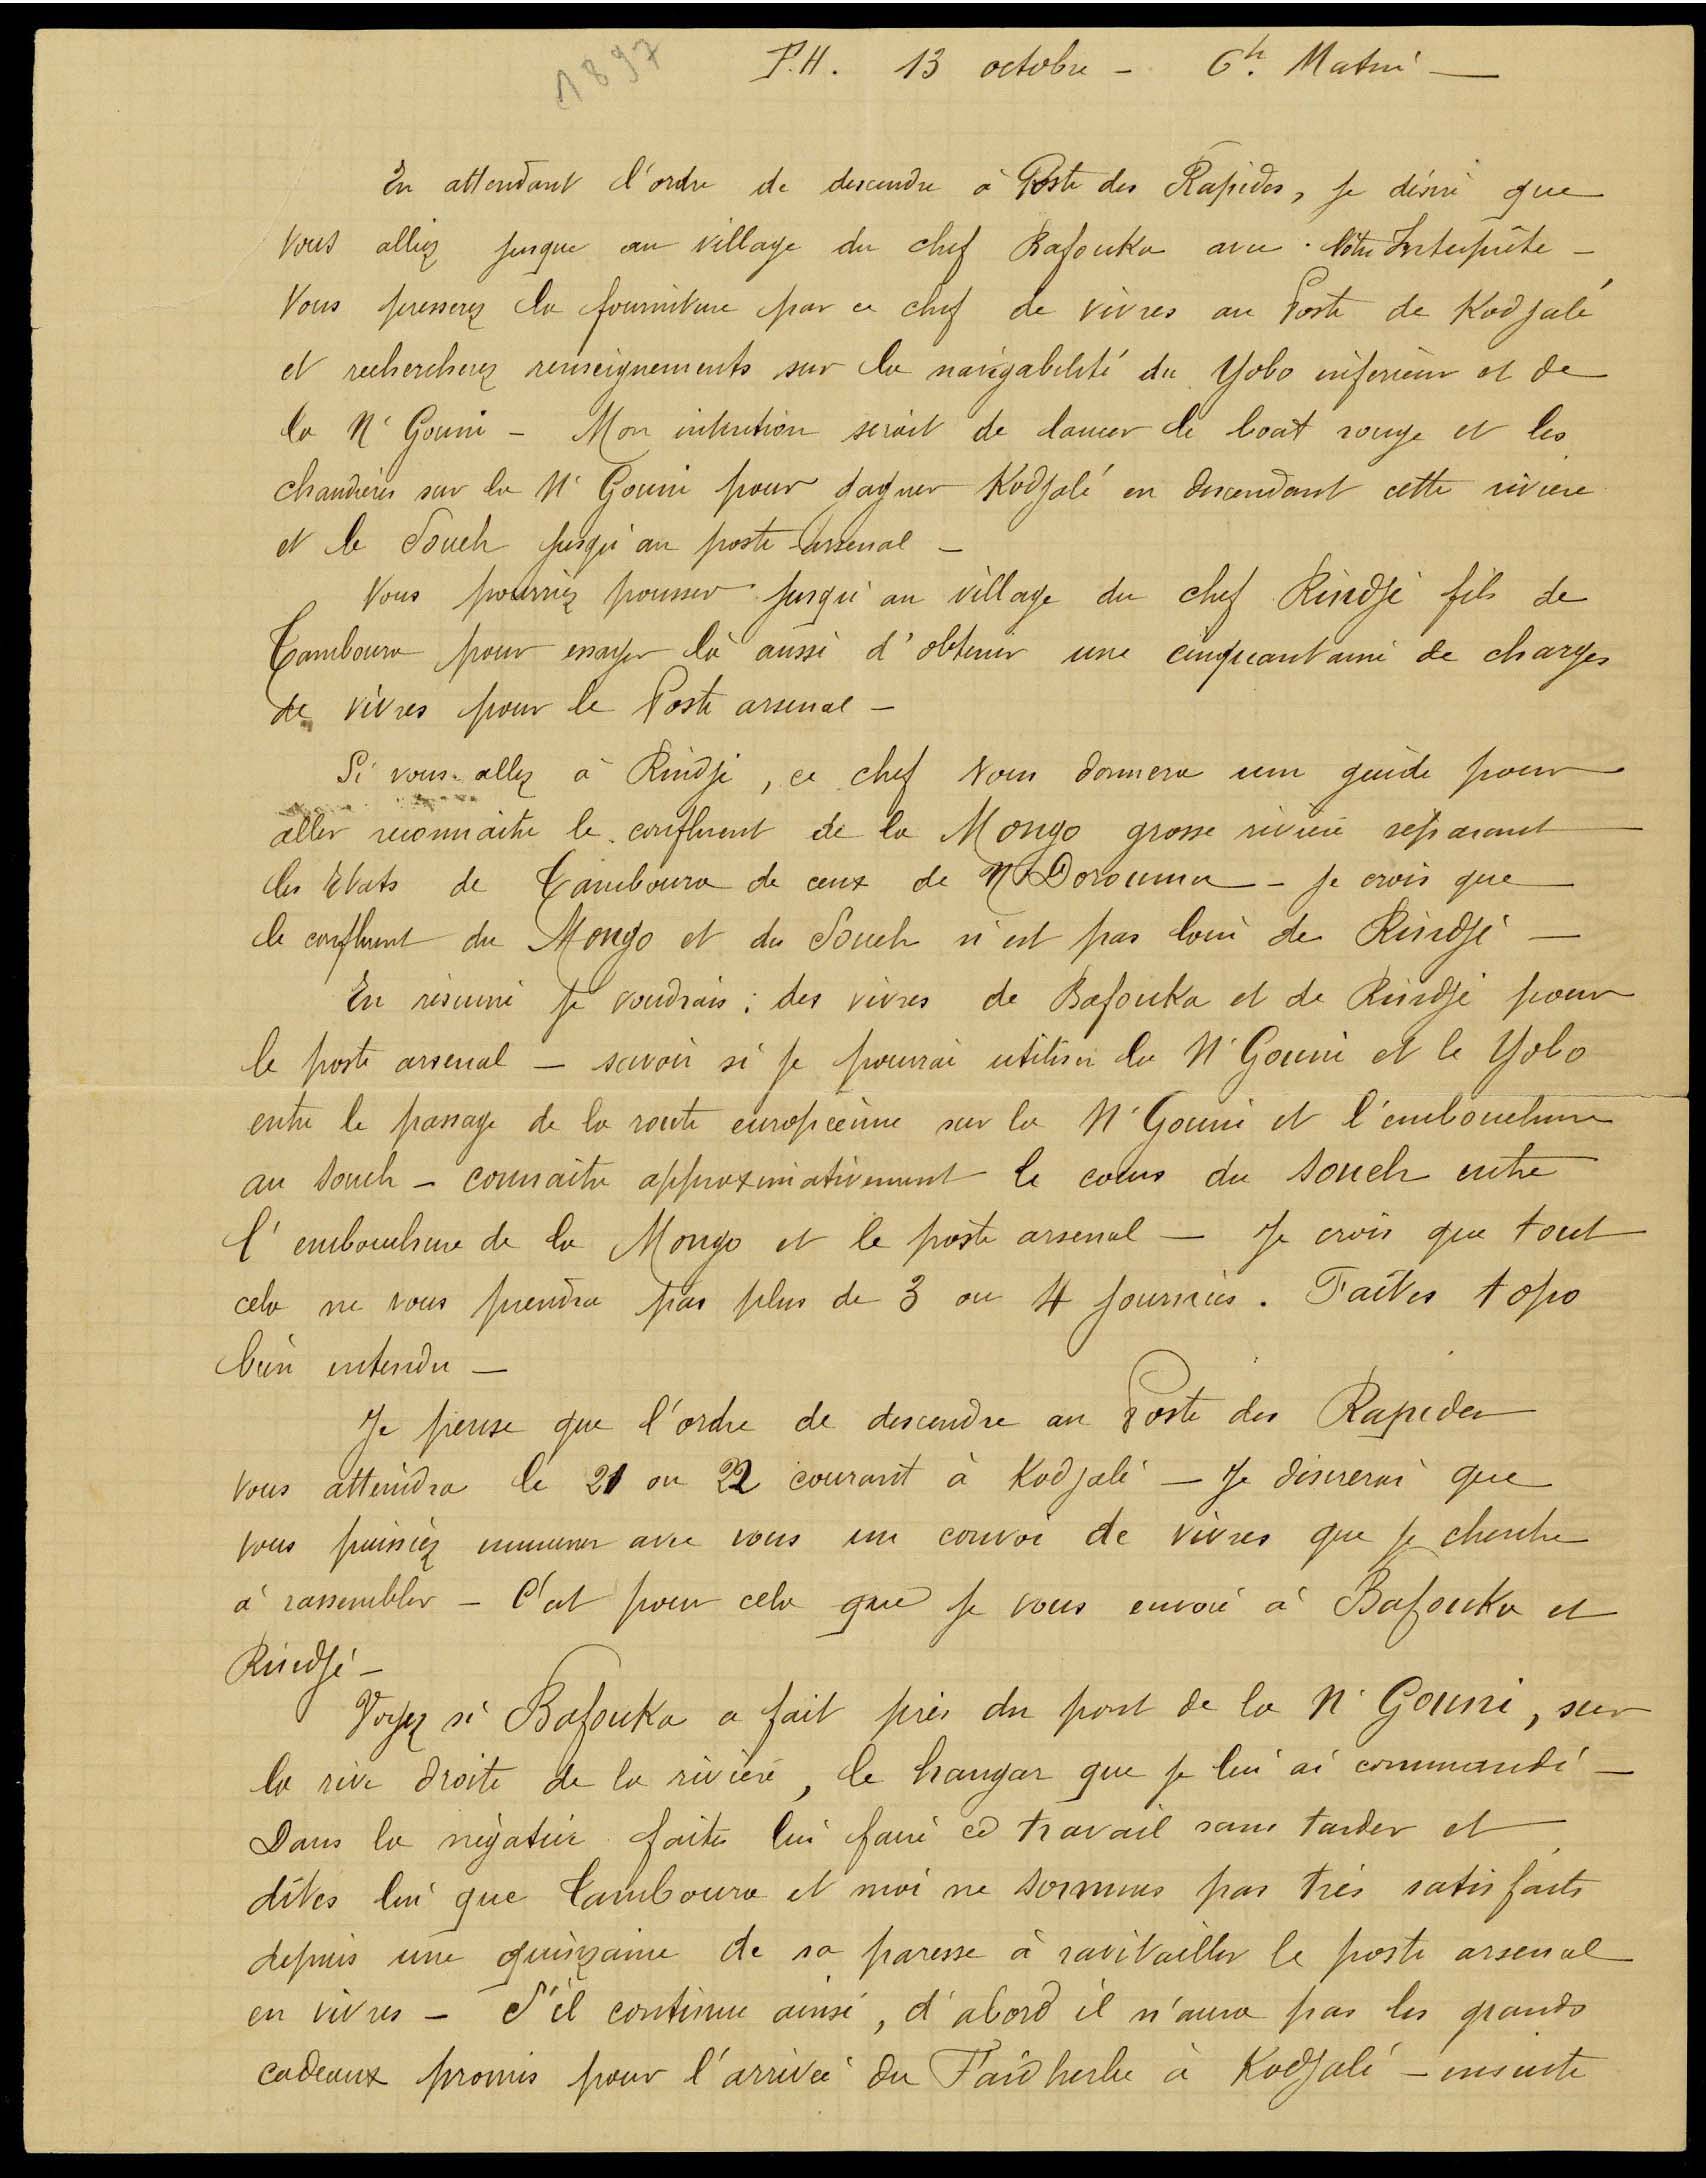 1897
P.H. 13 octobre - 6h. Matin -
En attendant l'ordre de descendre à Poste des Rapides, je désire que
vous alliez jusque au village du chef Bafouka avec votre Interprète -
Vous presserez la fourniture par ce chef de vivres au Poste de Kodjalé
et rechercherez renseignements sur la navigabilité du Yobo inférieur et de
la N'Gouni - Mon intention serait de lancer le boat rouge et les
chaudières sur la N'Gouni pour gagner Kodjalé en descendant cette rivière
et le Soueh jusqu'au poste arsenal -
Vous pourriez pousser jusqu'au village du chef Rindji fils de
Tamboura pour essayer là aussi d'obtenir une cinquantaine de charges
de vivres pour le Poste arsenal -
Si vous allez à Rindji, ce chef vous donnera un guide pour
aller reconnaître le confluent de la Mongo grosse rivière séparant
les Etats de Tamboura de ceux de N'Dorouma - Je crois que
le confluent du Mongo et du Soueh n'est pas loin de Rindji -
En résumé je voudrais : des vivres de Bafouka et de Rindji pour
le poste arsenal - savoir si je pourrai utiliser la N'Gouni et le Yobo
entre le passage de la route européenne sur la N'Gouni et l'embouchure
au Soueh - connaître approximativement le cours du Soueh entre
l'embouchure de la Mongo et le poste arsenal - Je crois que tout
cela ne vous prendra pas plus de 3 ou 4 journées. Faites topo
bien entendu -
Je pense que l'ordre de descendre au Poste des Rapides
vous atteindra le 21 ou 22 courant à Kodjalé - Je désirerai que
vous puissiez emmener avec vous un convoi de vivres que je cherche
à rassembler - C'est pour cela que je vous envoie à Bafouka et
Rindji -
Voyez si Bafouka a fait près du pont de la N'Gouni, sur
la rive droite de la rivière, le hangar que je lui ai commandé -
Dans la négative faites lui faire ce travail sans tarder et
dites lui que Tamboura et moi ne sommes pas très satisfaits
depuis une quinzaine de sa paresse à ravitailler le poste arsenal
en vivres - S'il continue ainsi, d'abord il n'aura pas les grands
cadeaux promis pour l'arrivée du Faidherbe à Kodjalé - ensuite